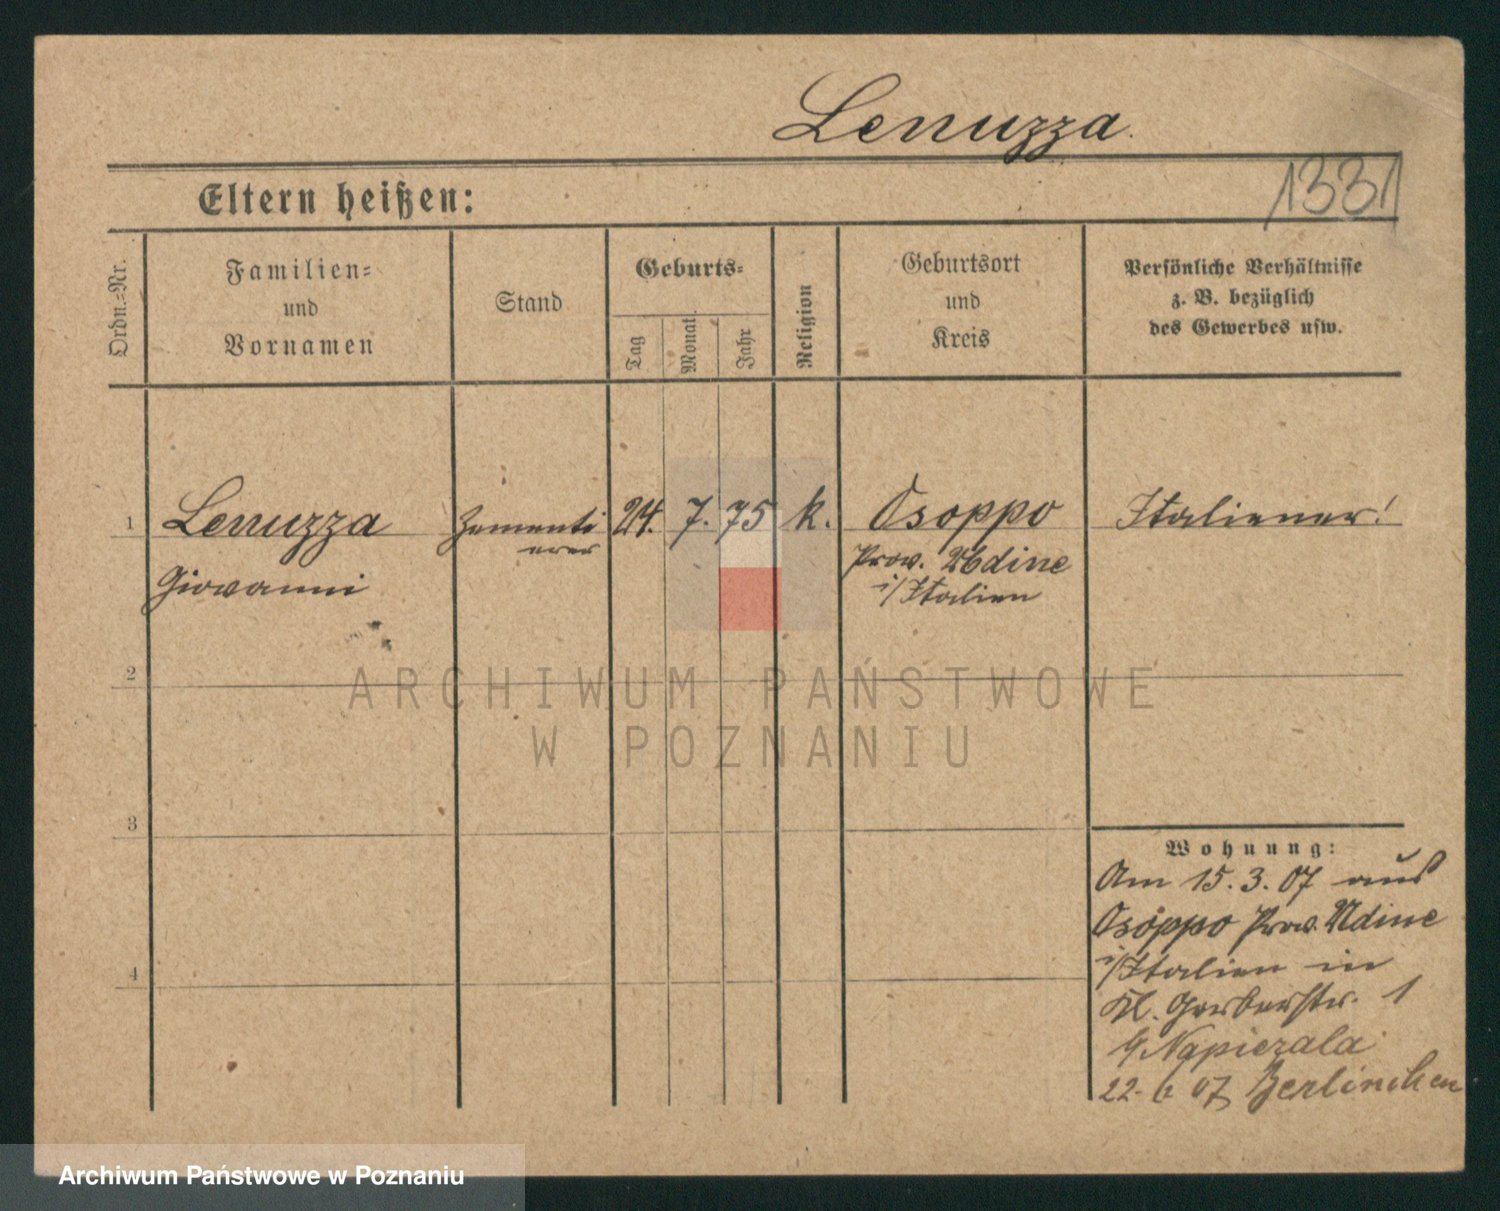 Lenuzza.
Eltern heißen:
1331
Ordn.=Nr.
Familien=
und
Vornamen
Stand
Geburts=
Tag
Monat
Jahr
Religion
Geburtsort
und
Kreis
Persönliche Verhältnisse
z. B. bezüglich
des Gewerbes usw.
1
Lenuzza
Giovanni
Zementi
erer
24. 7. 75
k.
Osoppo
Prov. Udine
i/Italien
Italiener!
2
3
4
Wohnung:
Am 15.3.07 aus
Osoppo Prov. Udine
i/Italien in
Kl. Gerberstr. 1
Napierala
22. 6 07 Berlinchen
ARCHIWUM PAŃSTWOWE
W POZNANIU
Archiwum Państwowe w Poznaniu